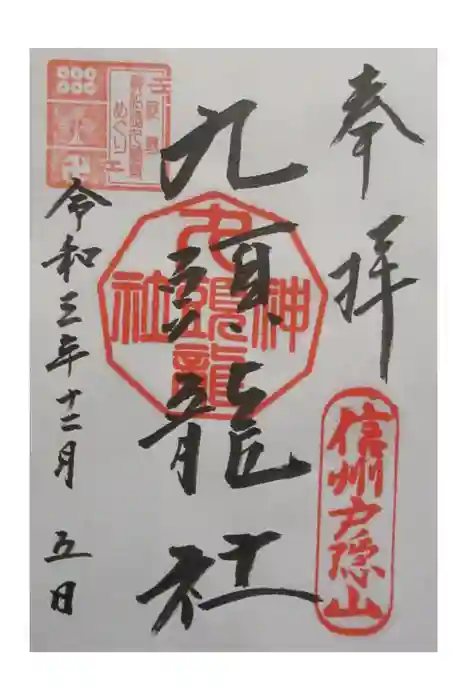 奉拝
信州戸隠山
九頭龍社
九頭龍
神社
めぐり
令和三年十二月 五日